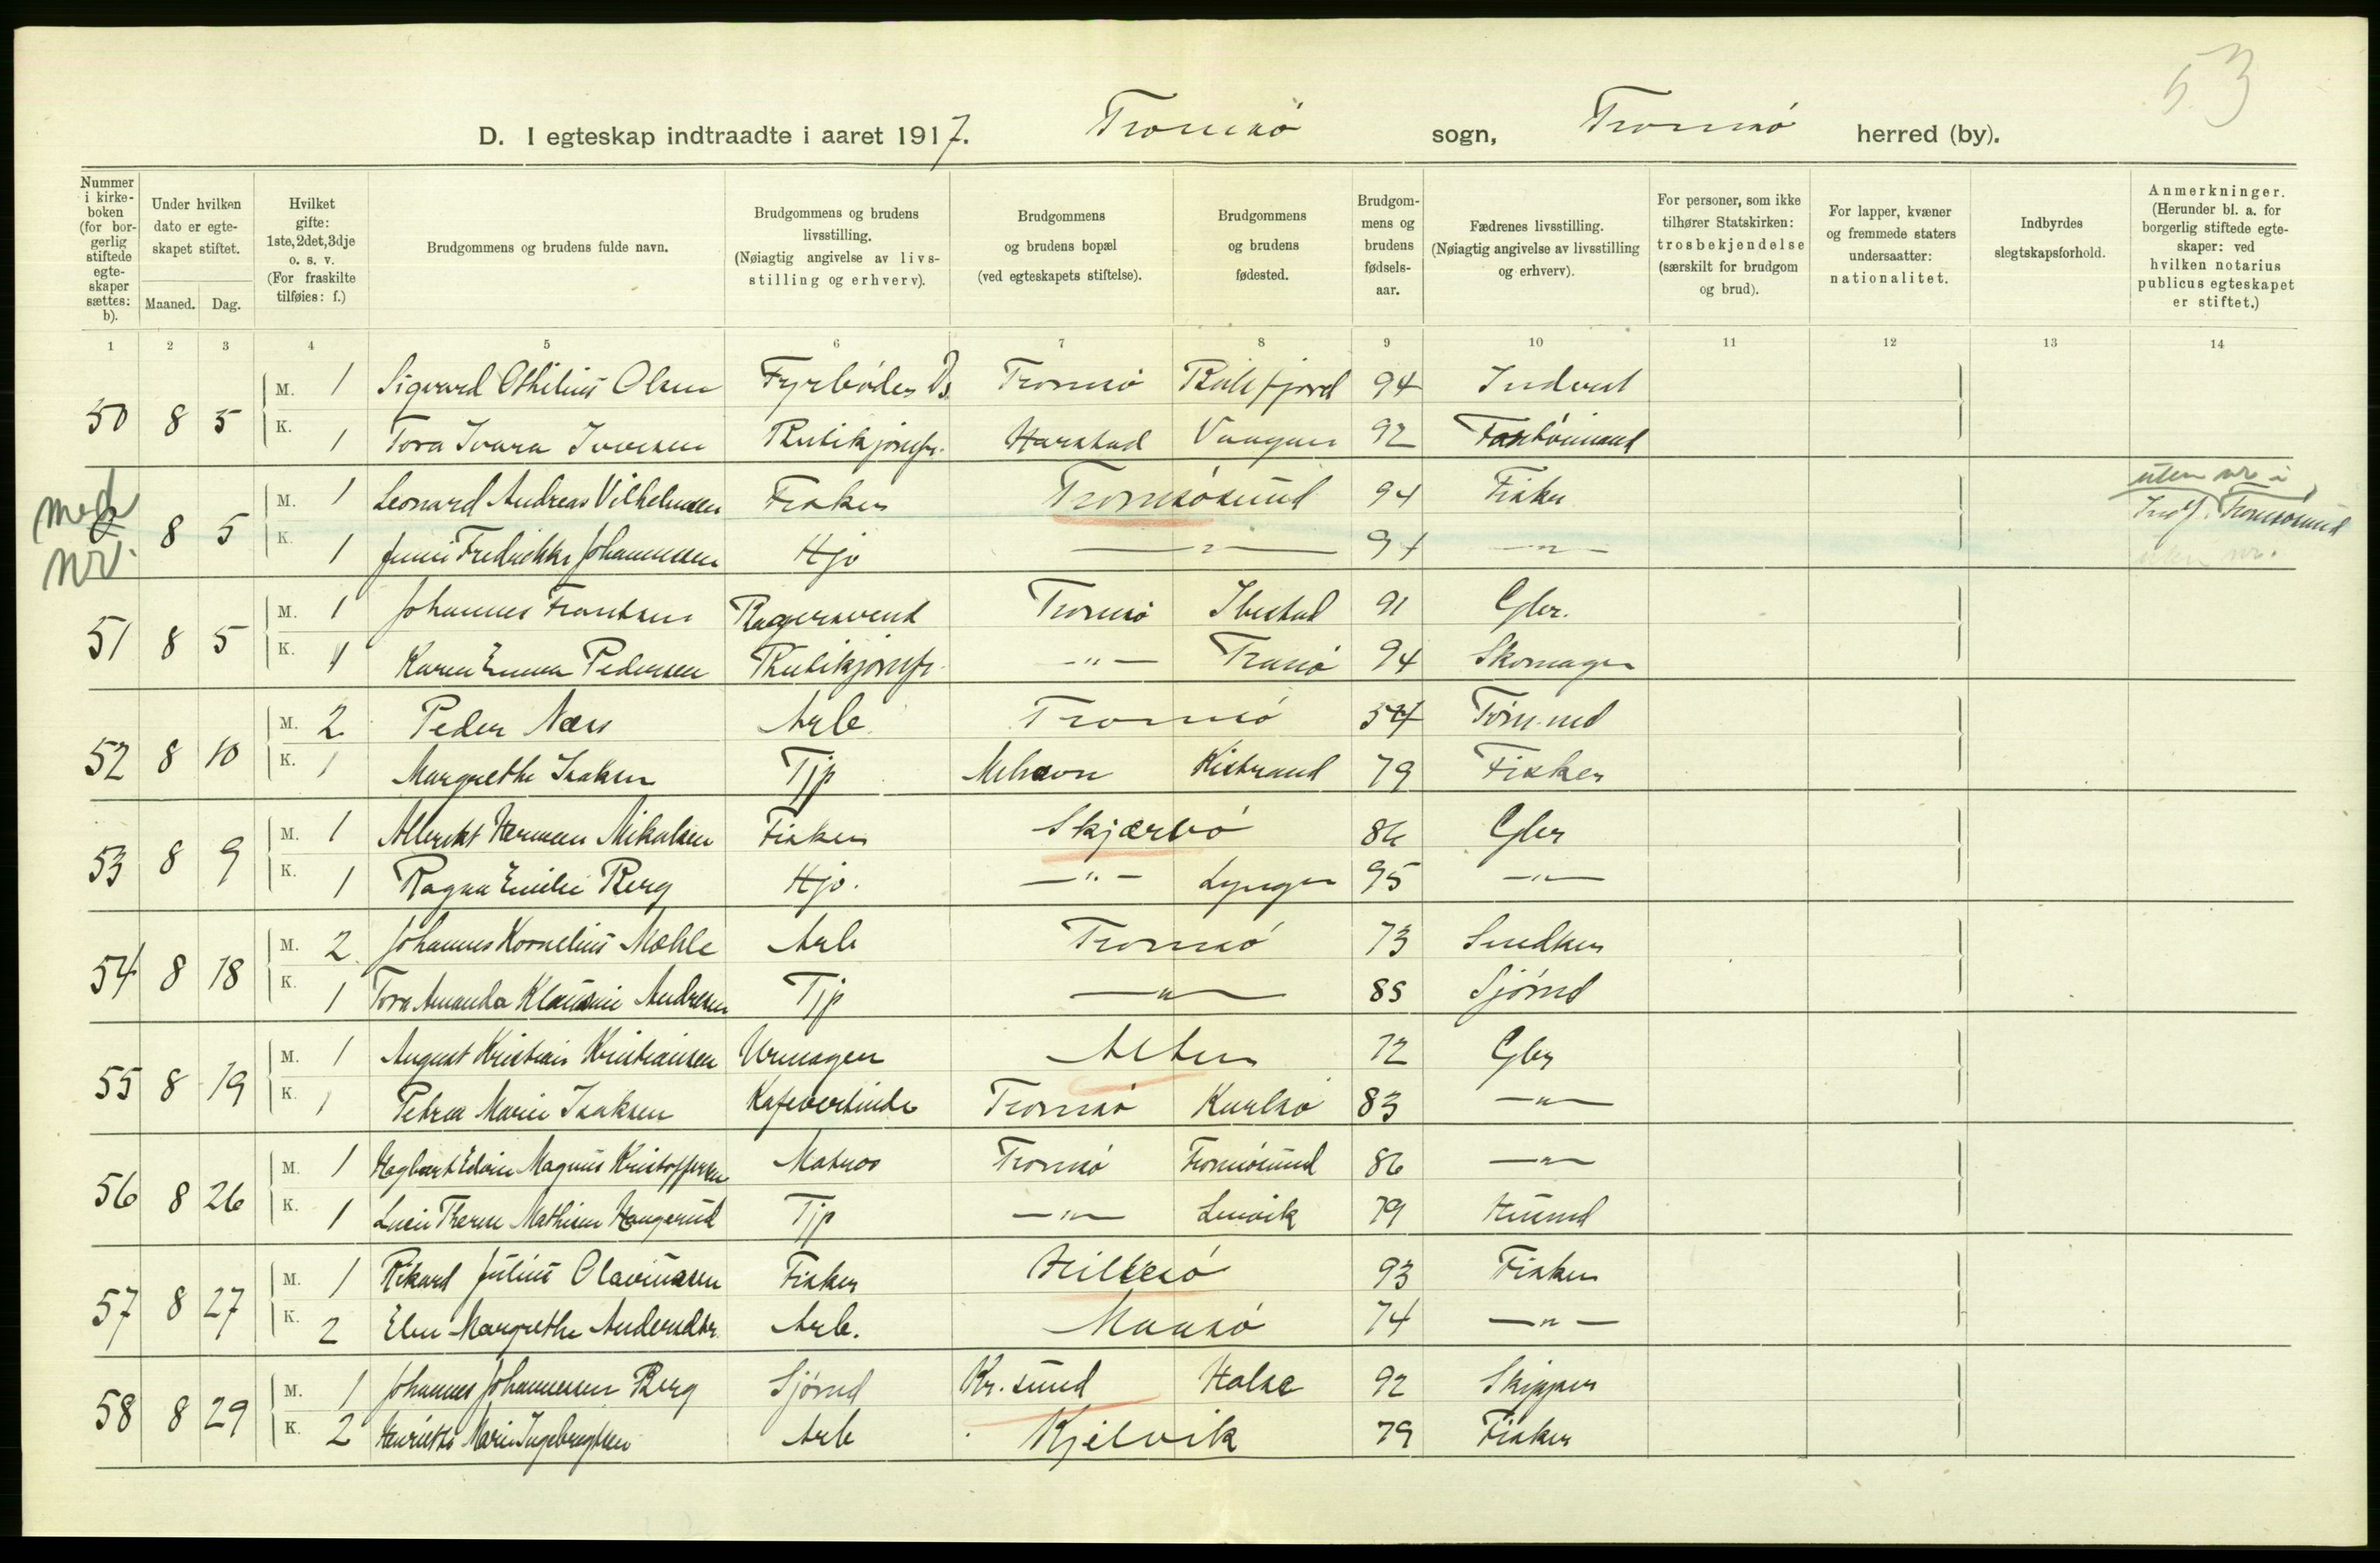 53
D. I egteskap indtraadte i aaret 1917. Tromsø sogn, Tromsø herred (by).
Nummer i kirkeboken (for borgerlig stiftede egteskaper sættes: b).
Under hvilken dato er egteskapet stiftet.
Maaned. Dag.
Hvilket gifte: 1ste, 2det, 3dje o. s. v. (For fraskilte tilføies: f.)
Brudgommens og brudens fulde navn.
Brudgommens og brudens livsstilling. (Nøiagtig angivelse av livsstilling og erhverv).
Brudgommens og brudens bopæl (ved egteskapets stiftelse).
Brudgommens og brudens fødested.
Brudgommens og brudens fødselsaar.
Fædrenes livsstilling. (Nøiagtig angivelse av livsstilling og erhverv).
For personer, som ikke tilhører Statskirken: trosbekjendelse (særskilt for brudgom og brud).
For lapper, kvæner og fremmede staters undersaatter: nationalitet.
Indbyrdes slegtskapsforhold.
Anmerkninger. (Herunder bl. a. for borgerlig stiftede egteskaper: ved hvilken notarius publicus egteskapet er stiftet.)
1 2 3 4 5 6 7 8 9 10 11 12 13 14
50 8 5 M. 1 Sigvard Othilius Olsen Fyrbøder Ds. Tromsø 94 Inderst
K. 1 Tora Ivara Iversen Butikjomfr. Harstad Vaagan 92
med nr. 8 5 M. 1 Leonard Andreas Vilhelmsen Fisker Tromsøsund 94 Fisker uten nr i Indf. Tromsøsund
K. 1 Fredrikke Johannessen Hjo — " — 94 — " — uten nr.
51 8 5 M. 1 Johannes Frantsen Bagersvend Tromsø Ibestad 91 Gbr.
K. 1 Karen Emma Pedersen Butikjomfr. — " — Tranø 94 Skomager
52 8 10 M. 2 Peder Næss Arb. Tromsø 54 Tømmd
K. 1 Margrethe Isaksen Tjp Mehavn Kistrand 79 Fisker
53 8 9 M. 1 Albrikt Herman Mikalsen Fisker Skjærvø 86 Gbr
K. 1 Ragna Emilie Berg Hjo. — " — Lyngen 95 — " —
54 8 18 M. 2 Johannes Kornelius Møhle Arb Tromsø 73 Snedker
K. 1 Tora Amanda Klausine Andresen Tjp — " — 88 Sjømd
55 8 19 M. 1 August Kristian Kristiansen Urmager Alten 72 Gbr
K. 1 Petra Marie Isaksen Kafevertinde Tromsø Karlsø 83 — " —
56 8 26 M. 1 Hagbart Edvin Magnus Kristoffersen Matros Tromsø Tromsøsund 86 — " —
K. 1 Lucie Therese Mathisen Haugerud Tjp — " — Lenvik 79 Husmd
57 8 27 M. 1 Rikard Julius Olavinussen Fisker Hillesø 93 Fisker
K. 2 Elen Margrethe Andersdtr. Arb. Maasø 74 — " —
58 8 29 M. 1 Johannes Johannessen Berg Sjømd Kr. sund Halse 92 Skipper
K. 2 Henrikke Marie Ingebrigtsen Arb Kjelvik 79 Fisker